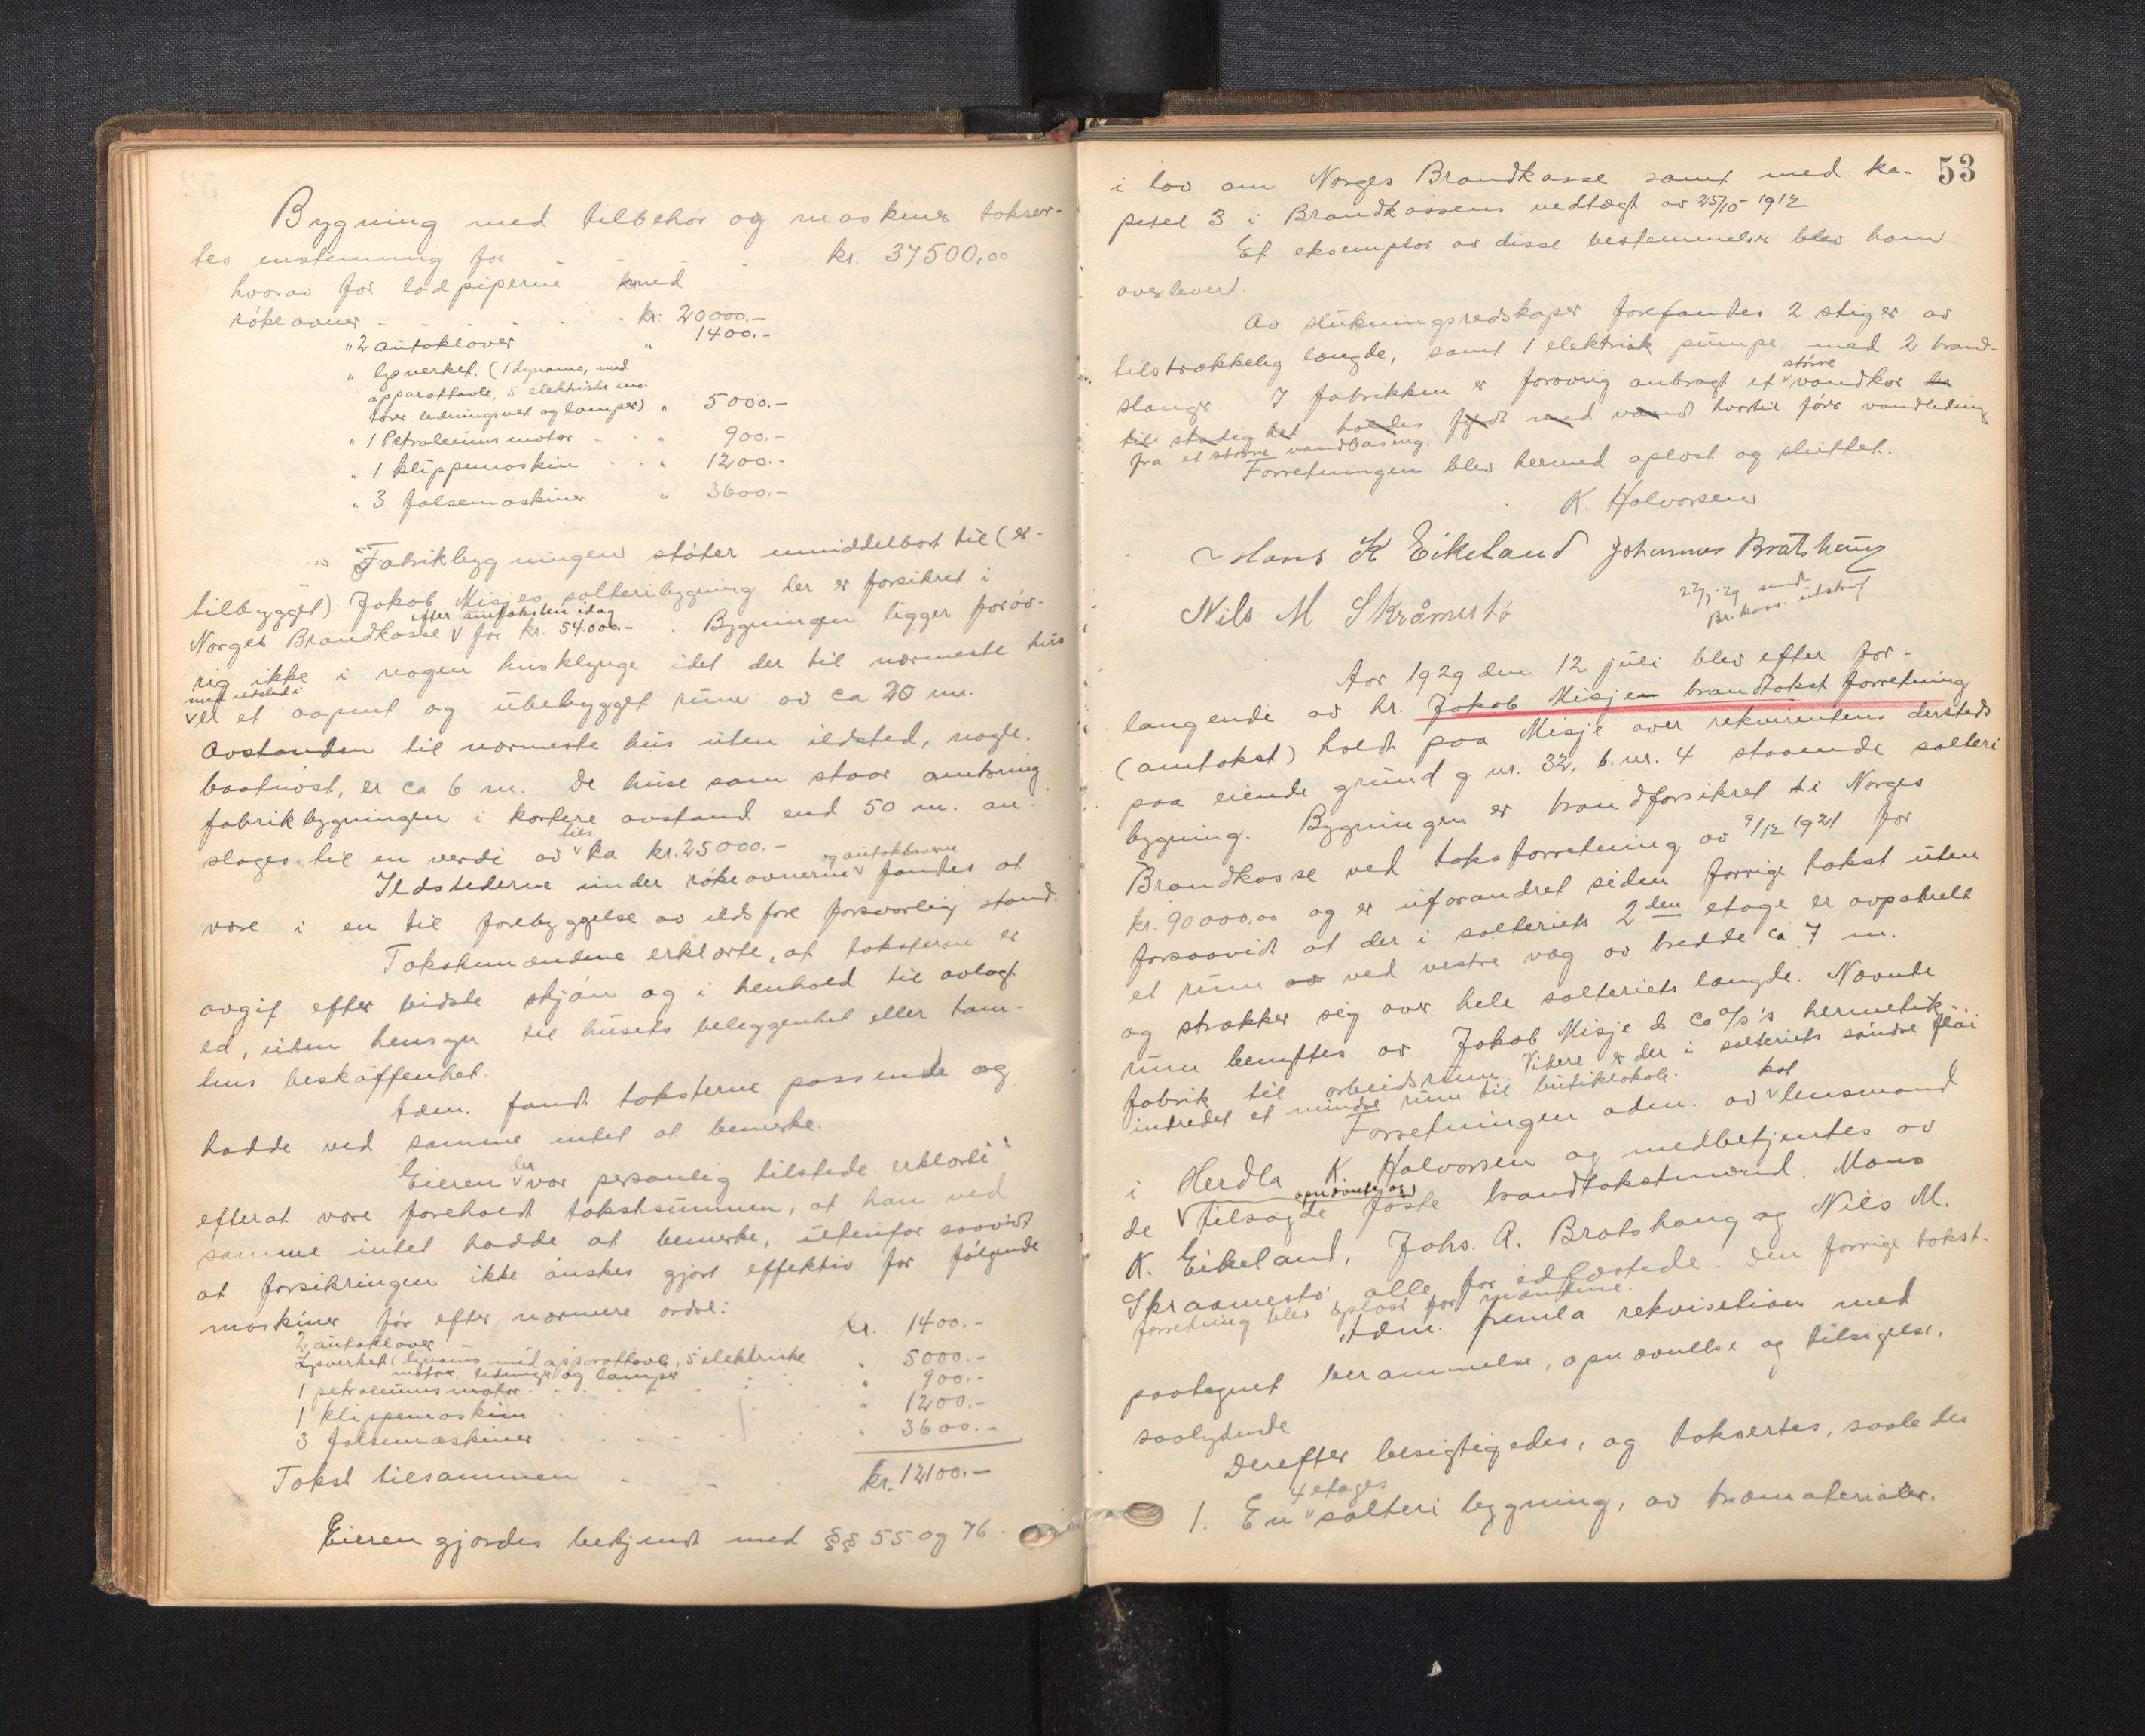 Bygning med tilbehør og maskiner takser-
tes enstemmig for - - - kr. 37500,00
hvorav for lodpiperne med
røkeovner - - - - kr. 20000.-
" 2 autoklaver " 1400.-
" lysverket, (1 dynamo, med
apparattavle, 5 elektriske mo-
torer ledningsnet og lamper) " 5000.-
" 1 Petroleumsmotor - - " 900.-
" 1 klippemaskin - - " 1200.-
" 3 falsemaskiner " 3600.-
Fabrikbygningen støter umiddelbart til (er
tilbygget) Jakob Misjes salteribygning der er forsikret i
efter amtaksten idag
Norges Brandkasse V for kr. 54.000.- . Bygningen ligger forøv-
rig ikke i nogen husklynge idet der til nærmeste hus
med ildsted i
V er et aapent og ubebygget rum av ca 20 m.
Avstanden til nærmeste hus uten ildsted, nogle
baatnøst, er ca 6 m. De huse som staar omkring
fabrikbygningen i kortere avstand end 50 m. an-
tils
slages til en verdi av V ka kr. 25000.-
og autoklaverne
Ildstederne under røkeovnerne V fandtes at
være i en til forebyggelse av ildsfare forsvarlig stand.
Takstmændene erklærte, at taksterne er
avgit efter bedste skjøn og i henhold til avlagt
ed, uten hensyn til husets beliggenhet eller tom-
tens beskaffenhet.
Ldm. fandt taksterne passende og
hadde ved samme intet at bemerke.
der
Eieren V var personlig tilstede erklærte
efterat være foreholdt takstsummen, at han ved
samme intet hadde at bemerke, utenfor saavidt
at forsikringen ikke ønskes gjort effektiv for følgende
maskiner før efter nærmere ordre:
2 autoklaver kr. 1400.-
Lysverket (dynamo med apparattavle, 5 elektriske
motorer, ledninger og lamper " 5000.-
1 petroleumsmotor " 900.-
1 klippemaskin " 1200.-
3 falsemaskiner " 3600.-
Takst tilsammen - - - kr. 12100.-
Eieren gjordes bekjendt med §§ 55 og 76
53
i lov om Norges Brandkasse samt med ka-
pitel 3 i Brandkassens vedtægt av 25/10 1912
Et eksemplar av disse bestemmelser blev ham
overlevert.
Av slukningsredskaper forefandtes 2 stiger av
tilstrækkelig længde, samt 1 elektrisk pumpe med 2 brand-
større
slanger. I fabrikken er forøvrig anbragt et V vandkar
til stadig det holdes fyldt med vand hvortil fører vandledning
fra et større vandbasseng.
Forretningen blev hermed opløst og sluttet.
K. Halvorsen
Mons K Eikeland Johannes Bratshaug
Nils M Skråmestø
27/7-29 send
Br.kass. utskrift
Aar 1929 den 12 juli blev efter for-
langende av hr. Jakob Misje brandtakst forretning
(omtakst) holdt paa Misje over rekvirentens dersteds
paa eiende grund g nr. 32, b. nr. 4 staaende salteri
bygning. Bygningen er brandforsikret i Norges
Brandkasse ved taksforretning av 9/12 1921 for
kr. 90000,00 og er uforandret siden forrige takst uten
forsaavidt at der i salteriets 2den etage er avpanelt
et rum av ved vestre væg av bredde ca 7 m.
og strækker sig over hele salteriets længde. Nævnte
rum benyttes av Jakob Misje & Co a/s's hermetik-
fabrik til arbeidsrum. Videre er der i salteriets søndre fløi
indredet et mindre rum til butiklokale.
kst
Forretningen adm. av V lensmand
i Herdla K. Halvorsen og medbetjentes av
opnævnte og
de V tilsagde faste brandtakstmænd Mons
K. Eikeland, Johs. A. Bratshaug og Nils M.
Skraamestø, alle før edfæstede. Den forrige takst-
forretning blev oplæst for mændene.
Ldm. fremla rekvisition med
paategnet berammelse, opnævnelse og tilsigelse,
saalydende
Derefter besigtigedes, og taksertes, saaledes
4 etages
1. En V salteri bygning, av træmaterialer.